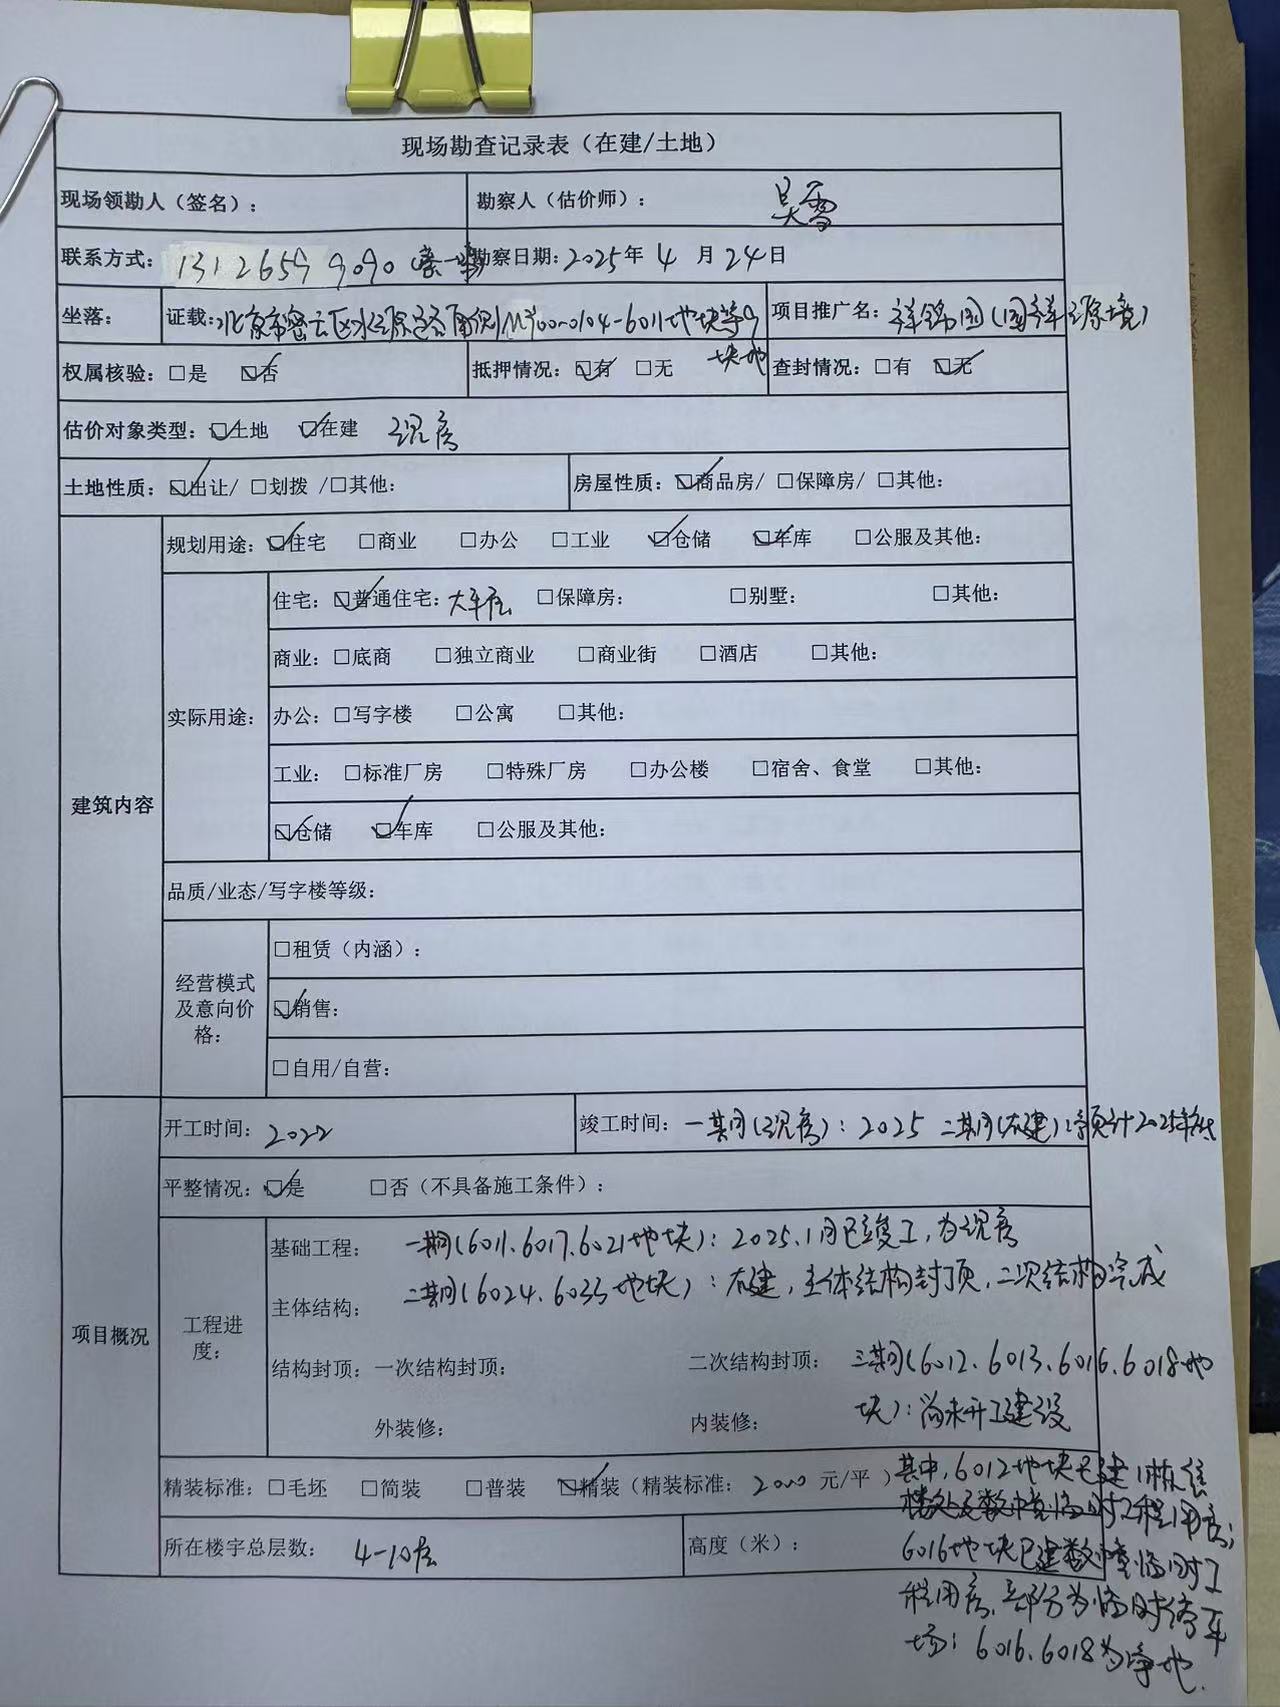 现场勘查记录表（在建/土地）
现场领勘人（签名）： 勘察人（估价师）： 吴雪
联系方式： 13126599090 勘察日期：2025年 4 月 24日
坐落： 证载：北京市密云区水源路南侧MY00-0104-6011地块等9块地 项目推广名：祥锦园（国祥源境）
权属核验：□是 ☑否 抵押情况：☑有 □无 查封情况：□有 ☑无
估价对象类型：☑土地 ☑在建 现房
土地性质：☑出让/ □划拨 /□其他： 房屋性质：☑商品房/ □保障房/ □其他：
建筑内容
规划用途：☑住宅 □商业 □办公 □工业 ☑仓储 ☑车库 □公服及其他：
实际用途：
住宅：☑普通住宅： □保障房： □别墅： □其他：
商业：□底商 □独立商业 □商业街 □酒店 □其他：
办公：□写字楼 □公寓 □其他：
工业： □标准厂房 □特殊厂房 □办公楼 □宿舍、食堂 □其他：
☑仓储 ☑车库 □公服及其他：
品质/业态/写字楼等级：
经营模式
及意向价
格：
□租赁（内涵）：
☑销售：
□自用/自营：
项目概况
开工时间：2022 竣工时间：一期（现房）：2025 二期（在建）：预计2025年底
平整情况：☑是 □否（不具备施工条件）：
工程进
度：
基础工程： 一期（6011、6017、6021地块）：2025.1月已竣工，为现房
主体结构： 二期（6024、6033地块）：在建，主体结构封顶，二次结构完成
结构封顶：一次结构封顶： 二次结构封顶： 三期（6012、6013、6016、6018地
块）：尚未开工建设
外装修： 内装修：
精装标准：□毛坯 □简装 □普装 ☑精装（精装标准： 2000 元/平）
其中，6012地块已建1栋售
楼处及数幢临时工程用房；
所在楼宇总层数： 4-10层 高度（米）：
6016地块已建数幢临时工
程用房，部分为临时停车
场；6016、6018为净地.